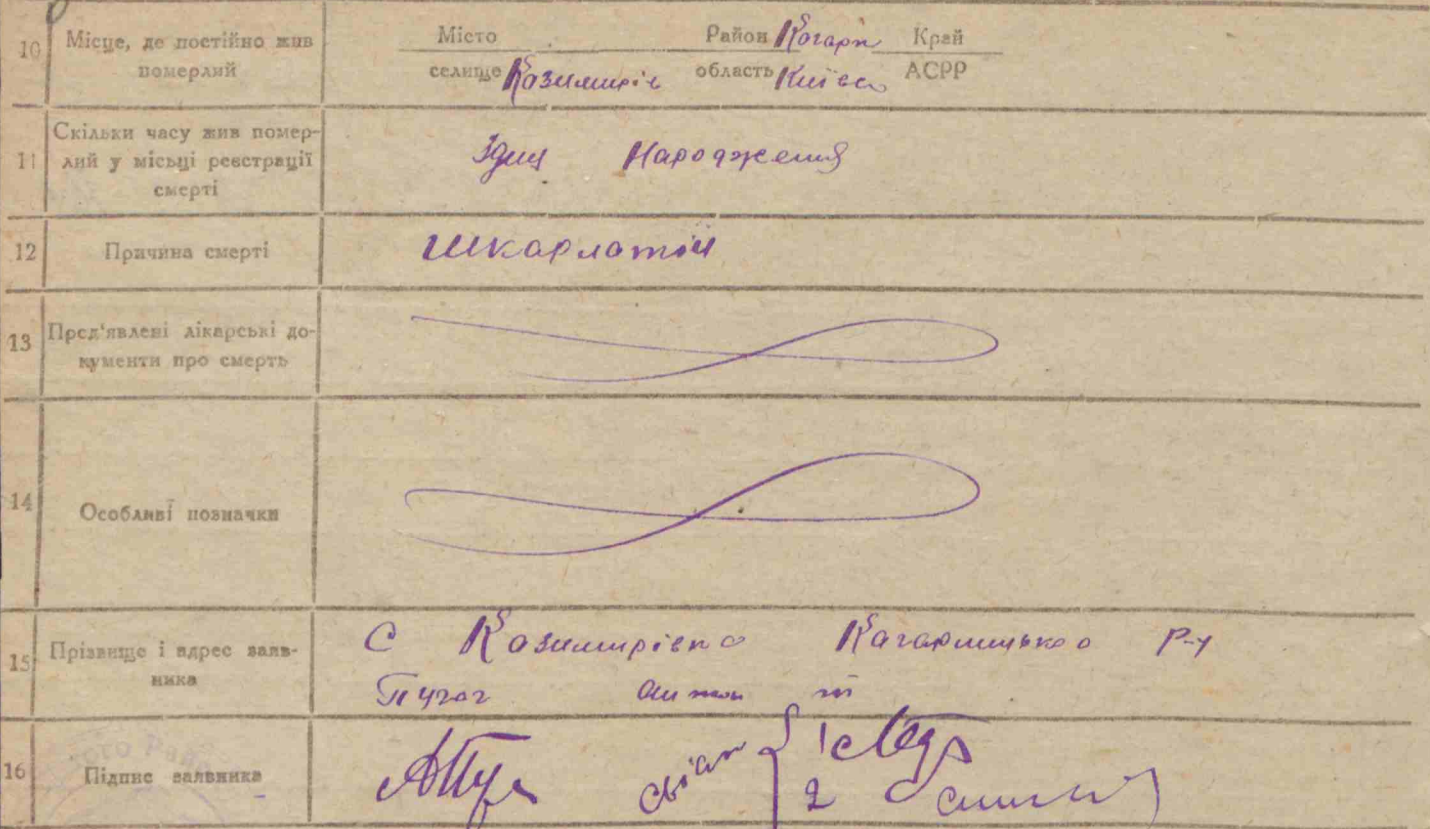 10 Місце, де постійно жив померлий
Місто Район Когарл Край
селище Казимирів область Київсь АСРР
11 Скільки часу жив помер-
лий у місьці реєстрації
смерті
Здня Народження
12 Причина смерті
Шкарлотій
13 Пред'явлені лікарські до-
кументи про смерть
14 Особливі позначки
15 Прізвище і адрес заяв-
ника
С Казимирівка Кагарлицького р-у
Пугач Антон
16 Підпис заявника
АПуг свіат { 1
2